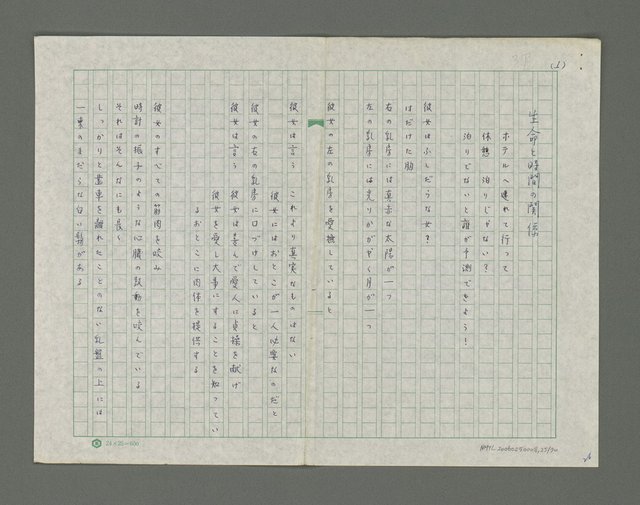 (1)
生命と時間の関係
ホテルへ連れて行って
休憩 泊りじゃない?
泊りでないと誰が予測できよう!
彼女はふしだらな女?
はだけた胸
右の乳房には真赤な太陽が一つ
左の乳房には光りかがやく月が一つ
彼女の左の乳房を愛撫していると
彼女は言う これより真実なものはない
彼女にはおとこが一人必要なのだと
彼女の右の乳房に口づけしていると
彼女は言う 彼女は喜んで愛人に貞操を献げ
彼女を愛し大事にすることを知ってい
るおとこに肉体を提供する
彼女のすべての筋肉を咬み
時計の振子のような心臓の鼓動を咬んでいる
それはそんなにも長く
しっかりと豊東を離れたことのない乳盤の上には
一束のまだらな白い髪がある
24×25=600